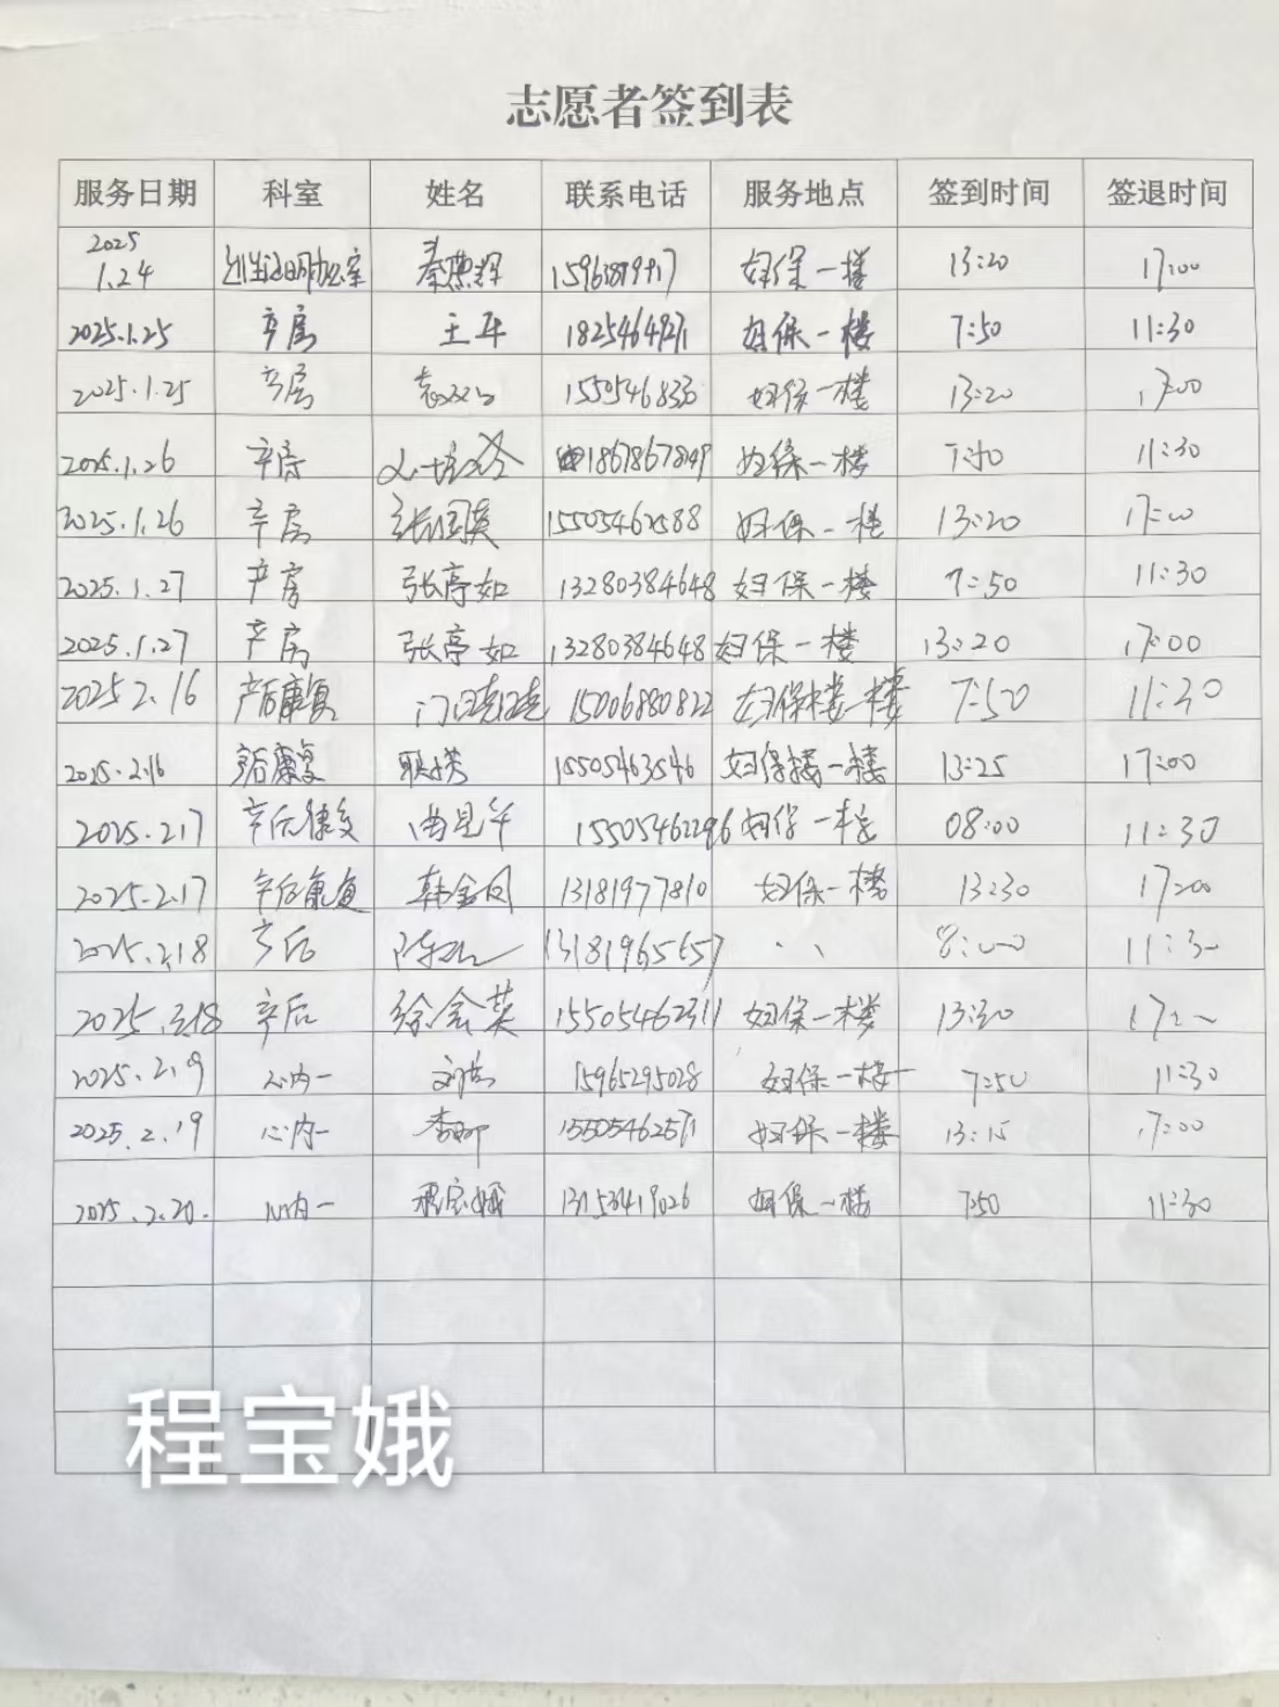 志愿者签到表
服务日期 科室 姓名 联系电话 服务地点 签到时间 签退时间
2025
1.24 出生证明办公室 秦燕辉 妇保一楼 13:20 17:00
2025.1.25 产房 王平 妇保一楼 7:50 11:30
2025.1.25 产房 妇保一楼 13:20 17:00
2025.1.26 产房 18678678949 妇保一楼 11:30
2025.1.26 产房 张国英 15505462588 妇保一楼 13:20 17:00
2025.1.27 产房 张亭如 13280384648 妇保一楼 7:50 11:30
2025.1.27 产房 张亭如 13280384648 妇保一楼 13:20 17:00
2025 2.16 产后康复 门晓晓 15006880822 妇保楼一楼 7:50 11:30
2025.2.16 产后康复 15505463546 妇保楼一楼 13:25 17:00
2025.2.17 产后康复 15505462296 妇保一楼 08:00 11:30
2025.2.17 产后康复 韩金凤 13181977810 妇保一楼 13:30 17:00
2025.2.18 产后 13181965657 8:00 11:30
产后 徐会英 15505462311 妇保一楼 13:30
2025.2.19 心内一 15965295028 妇保一楼 7:50 11:30
2025.2.19 心内一 李娜 15505462571 妇保一楼 13:15 17:00
2025.2.20. 心内一 程宝娥 妇保一楼 7:50 11:30
程宝娥